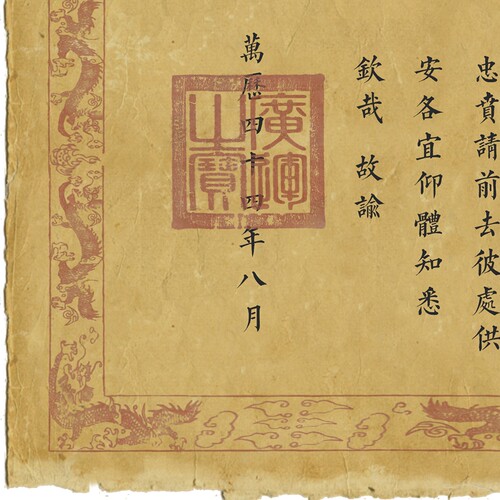 忠賁請前去彼處供
安各宜仰體知悉
欽哉 故諭
萬曆四十四年八月
廣運之寶